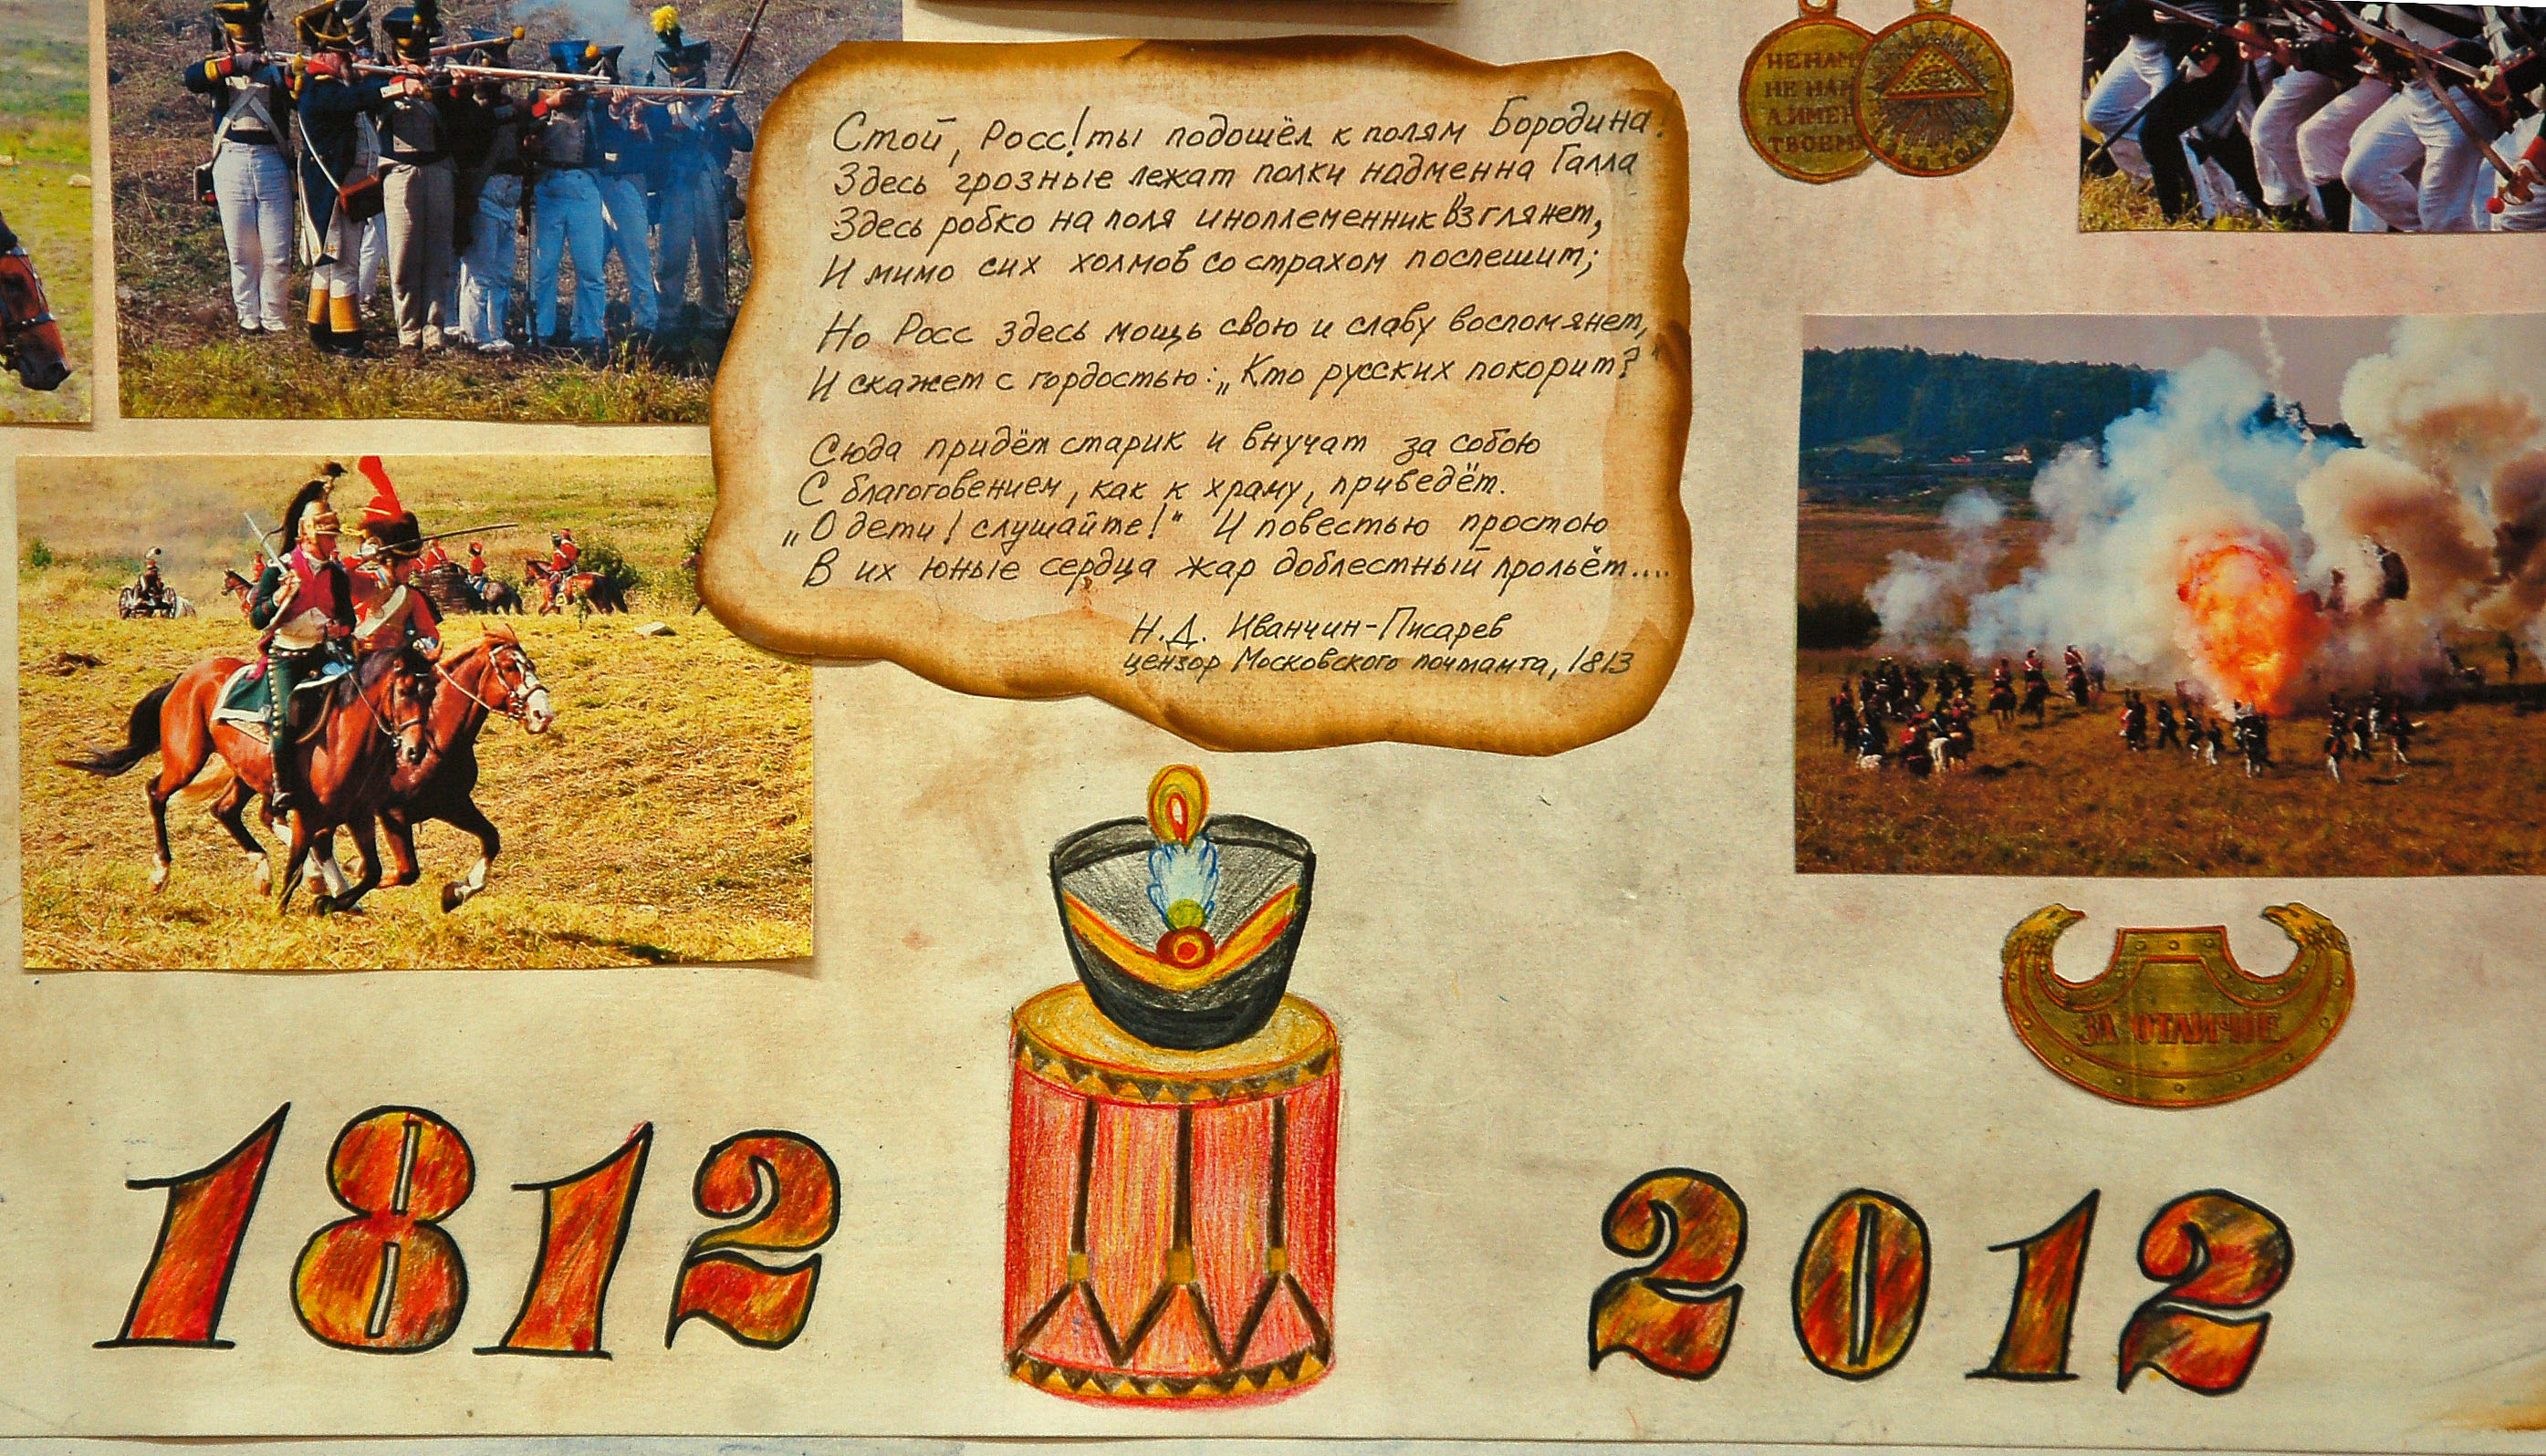 Стой, Росс! ты подошёл к полям Бородина!
Здесь грозные лежат полки надменна Галла
Здесь робко на поля иноплеменник взглянет,
И мимо сих холмов со страхом поспешит;
Но Росс здесь мощь свою и славу воспомянет,
И скажет с гордостью: „Кто русских покорит?"
Сюда придёт старик и внучат за собою
С благоговением, как к храму, приведёт.
„О дети! слушайте!" И повестью простою
В их юные сердца жар доблестный прольёт....
Н.Д. Иванчин-Писарев
цензор Московского почтамта, 1813
НЕ НАМ
НЕ НАМ
А ИМЕН
ТВОЕМ
ЗА ОТЛИЧIЕ
1812
2012